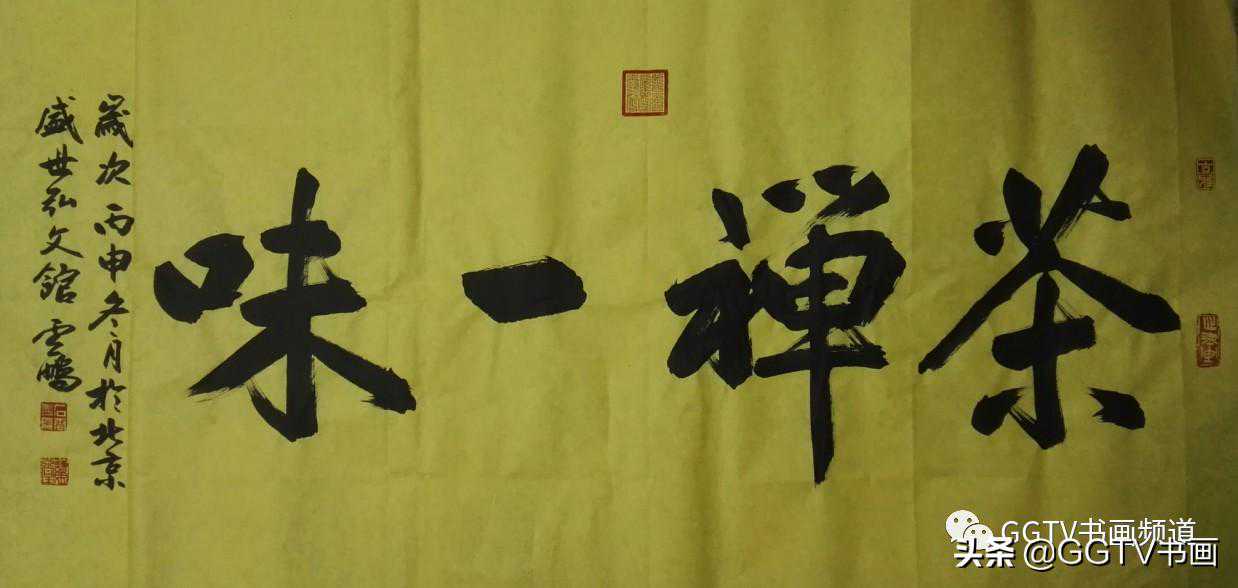 茶禅一味
歲次丙申冬月於北京
盛世弘文館
GGTV书画频道
头条 @GGTV书画